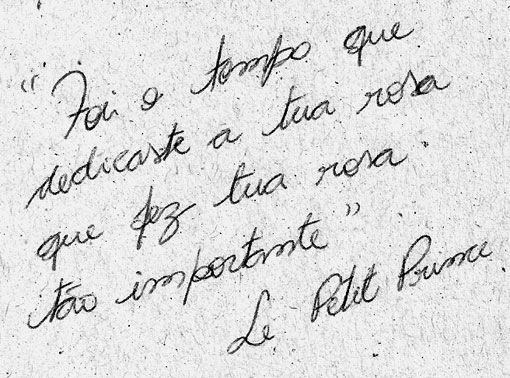 "Foi o tempo que
dedicaste a tua rosa
que fez tua rosa
tão importante"
Le Petit Prince.